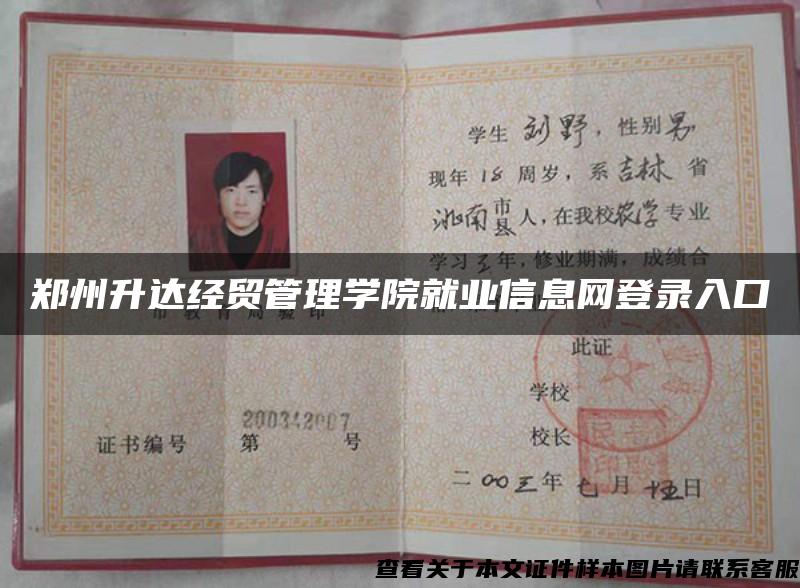 学生刘野，性别男
现年18周岁，系吉林省
洮南市县人，在我校农学专业
学习三年，修业期满，成绩合
郑州升达经贸管理学院就业信息网登录入口
市教育局验印
此证
学校
200342007
证书编号 第 号
校长
二〇〇三年七月十五日
查看关于本文证件样本图片请联系客服